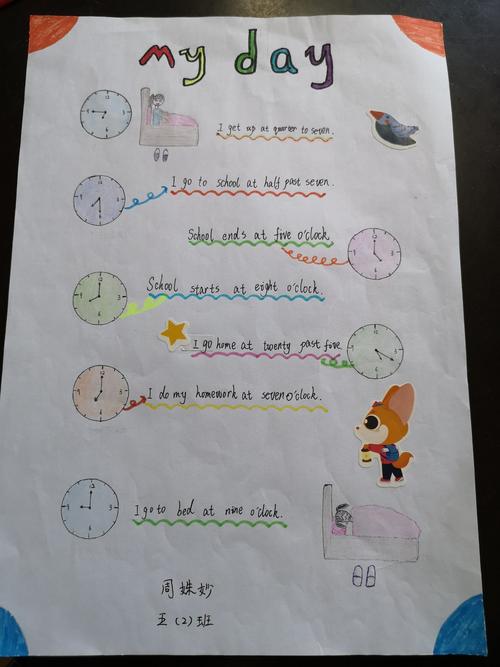 my day
I get up at quarter to seven.
I go to school at half past seven.
School ends at five o'clock.
School starts at eight o'clock.
I go home at twenty past five
I do my homework at seven o'clock.
I go to bed at nine o'clock.
周姝妙
五(2)班